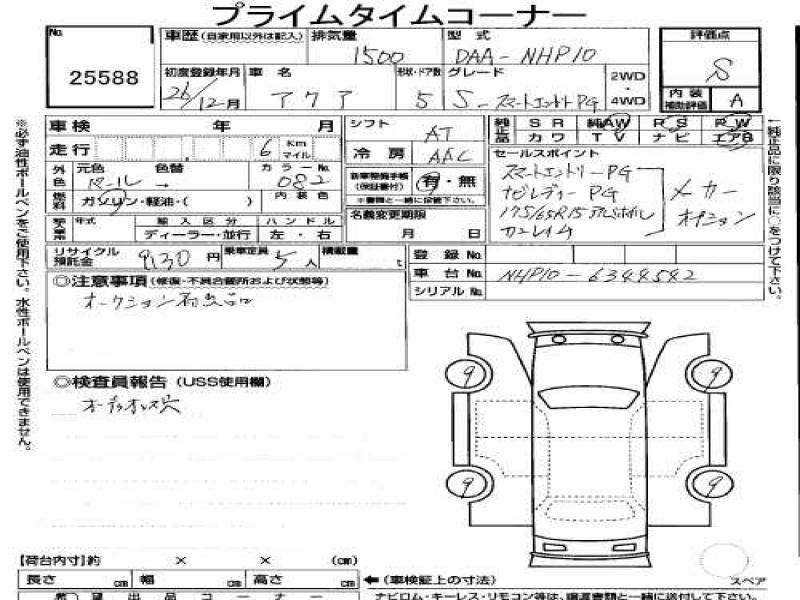 プライムタイムコーナー
No. 25588
車歴(自家用以外は記入) 排気量 1500 型式 DAA-NHP10
初度登録年月 26/12月 車名 アクア 形状・ドア数 5 グレード S-スマートエントリーPG 2WD・4WD
評価点 S
内装補助評価 A
車検 年 月
走行 6 Km マイル
外色 元色 パール 色替 → カラーNo. 082
燃料 ガソリン・軽油・( ) 内装色
年式 輸入区分 ディーラー・並行 ハンドル 左・右
リサイクル預託金 9130円 乗車定員 5人 積載量 t
シフト AT
冷房 AAC
新車整備手帳(保証書付) 有・無
※書類と一緒に保管下さい。
名義変更期限 月 日
純正品 SR 純AW PS PW
カワ TV ナビ エアB
セールスポイント
スマートエントリーPG
ナビレディーPG
175/65R15アルミホイル
メーカーオプション
登録No.
車台No. NHP10-6344542
シリアルNo.
◎注意事項(修復・不具合箇所および状態等)
オークション
◎検査員報告(USS使用欄)
9 9
9 9
【荷台内寸】約 × × (cm)
長さ cm 幅 cm 高さ cm ←(車検証上の寸法)
スペア
希望出品コーナー
ナビロム・キーレス・リモコン等は、譲渡書類と一緒に送付して下さい。
※必ず油性ボールペンをご使用下さい。水性ボールペンは使用できません。
↑純正品に限り該当に○をつけて下さい。